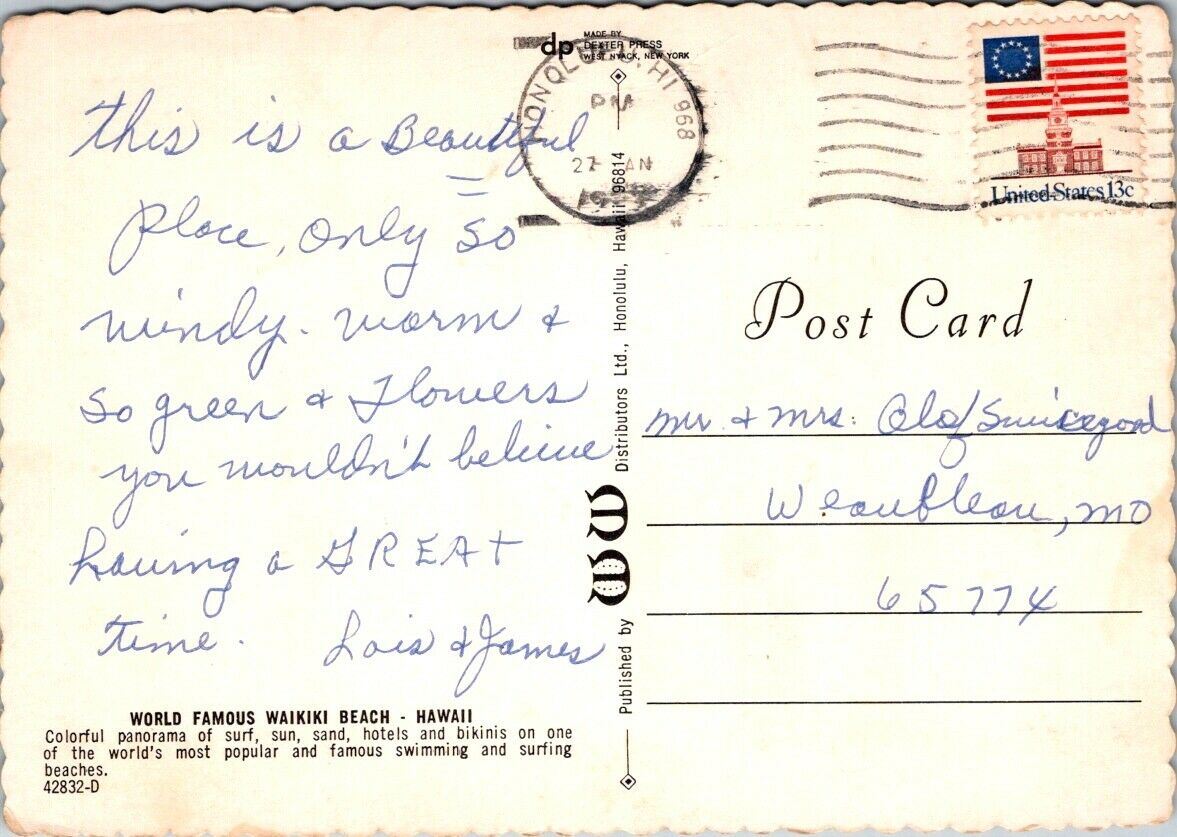 this is a Beautiful
Place, only so
windy. warm &
so green & Flowers
you wouldn't believe
having a GREAT
time. Lois & James
WORLD FAMOUS WAIKIKI BEACH - HAWAII
Colorful panorama of surf, sun, sand, hotels and bikinis on one
of the world's most popular and famous swimming and surfing
beaches.
42832-D
dp
MADE BY
DEXTER PRESS
WEST NYACK, NEW YORK
Published by WW Distributors Ltd., Honolulu, Hawaii 96814
HONOLULU, HI 968
PM
27
United States 13c
Post Card
Mr. & Mrs. Olof Swicegood
Weaubleau, MO
65774